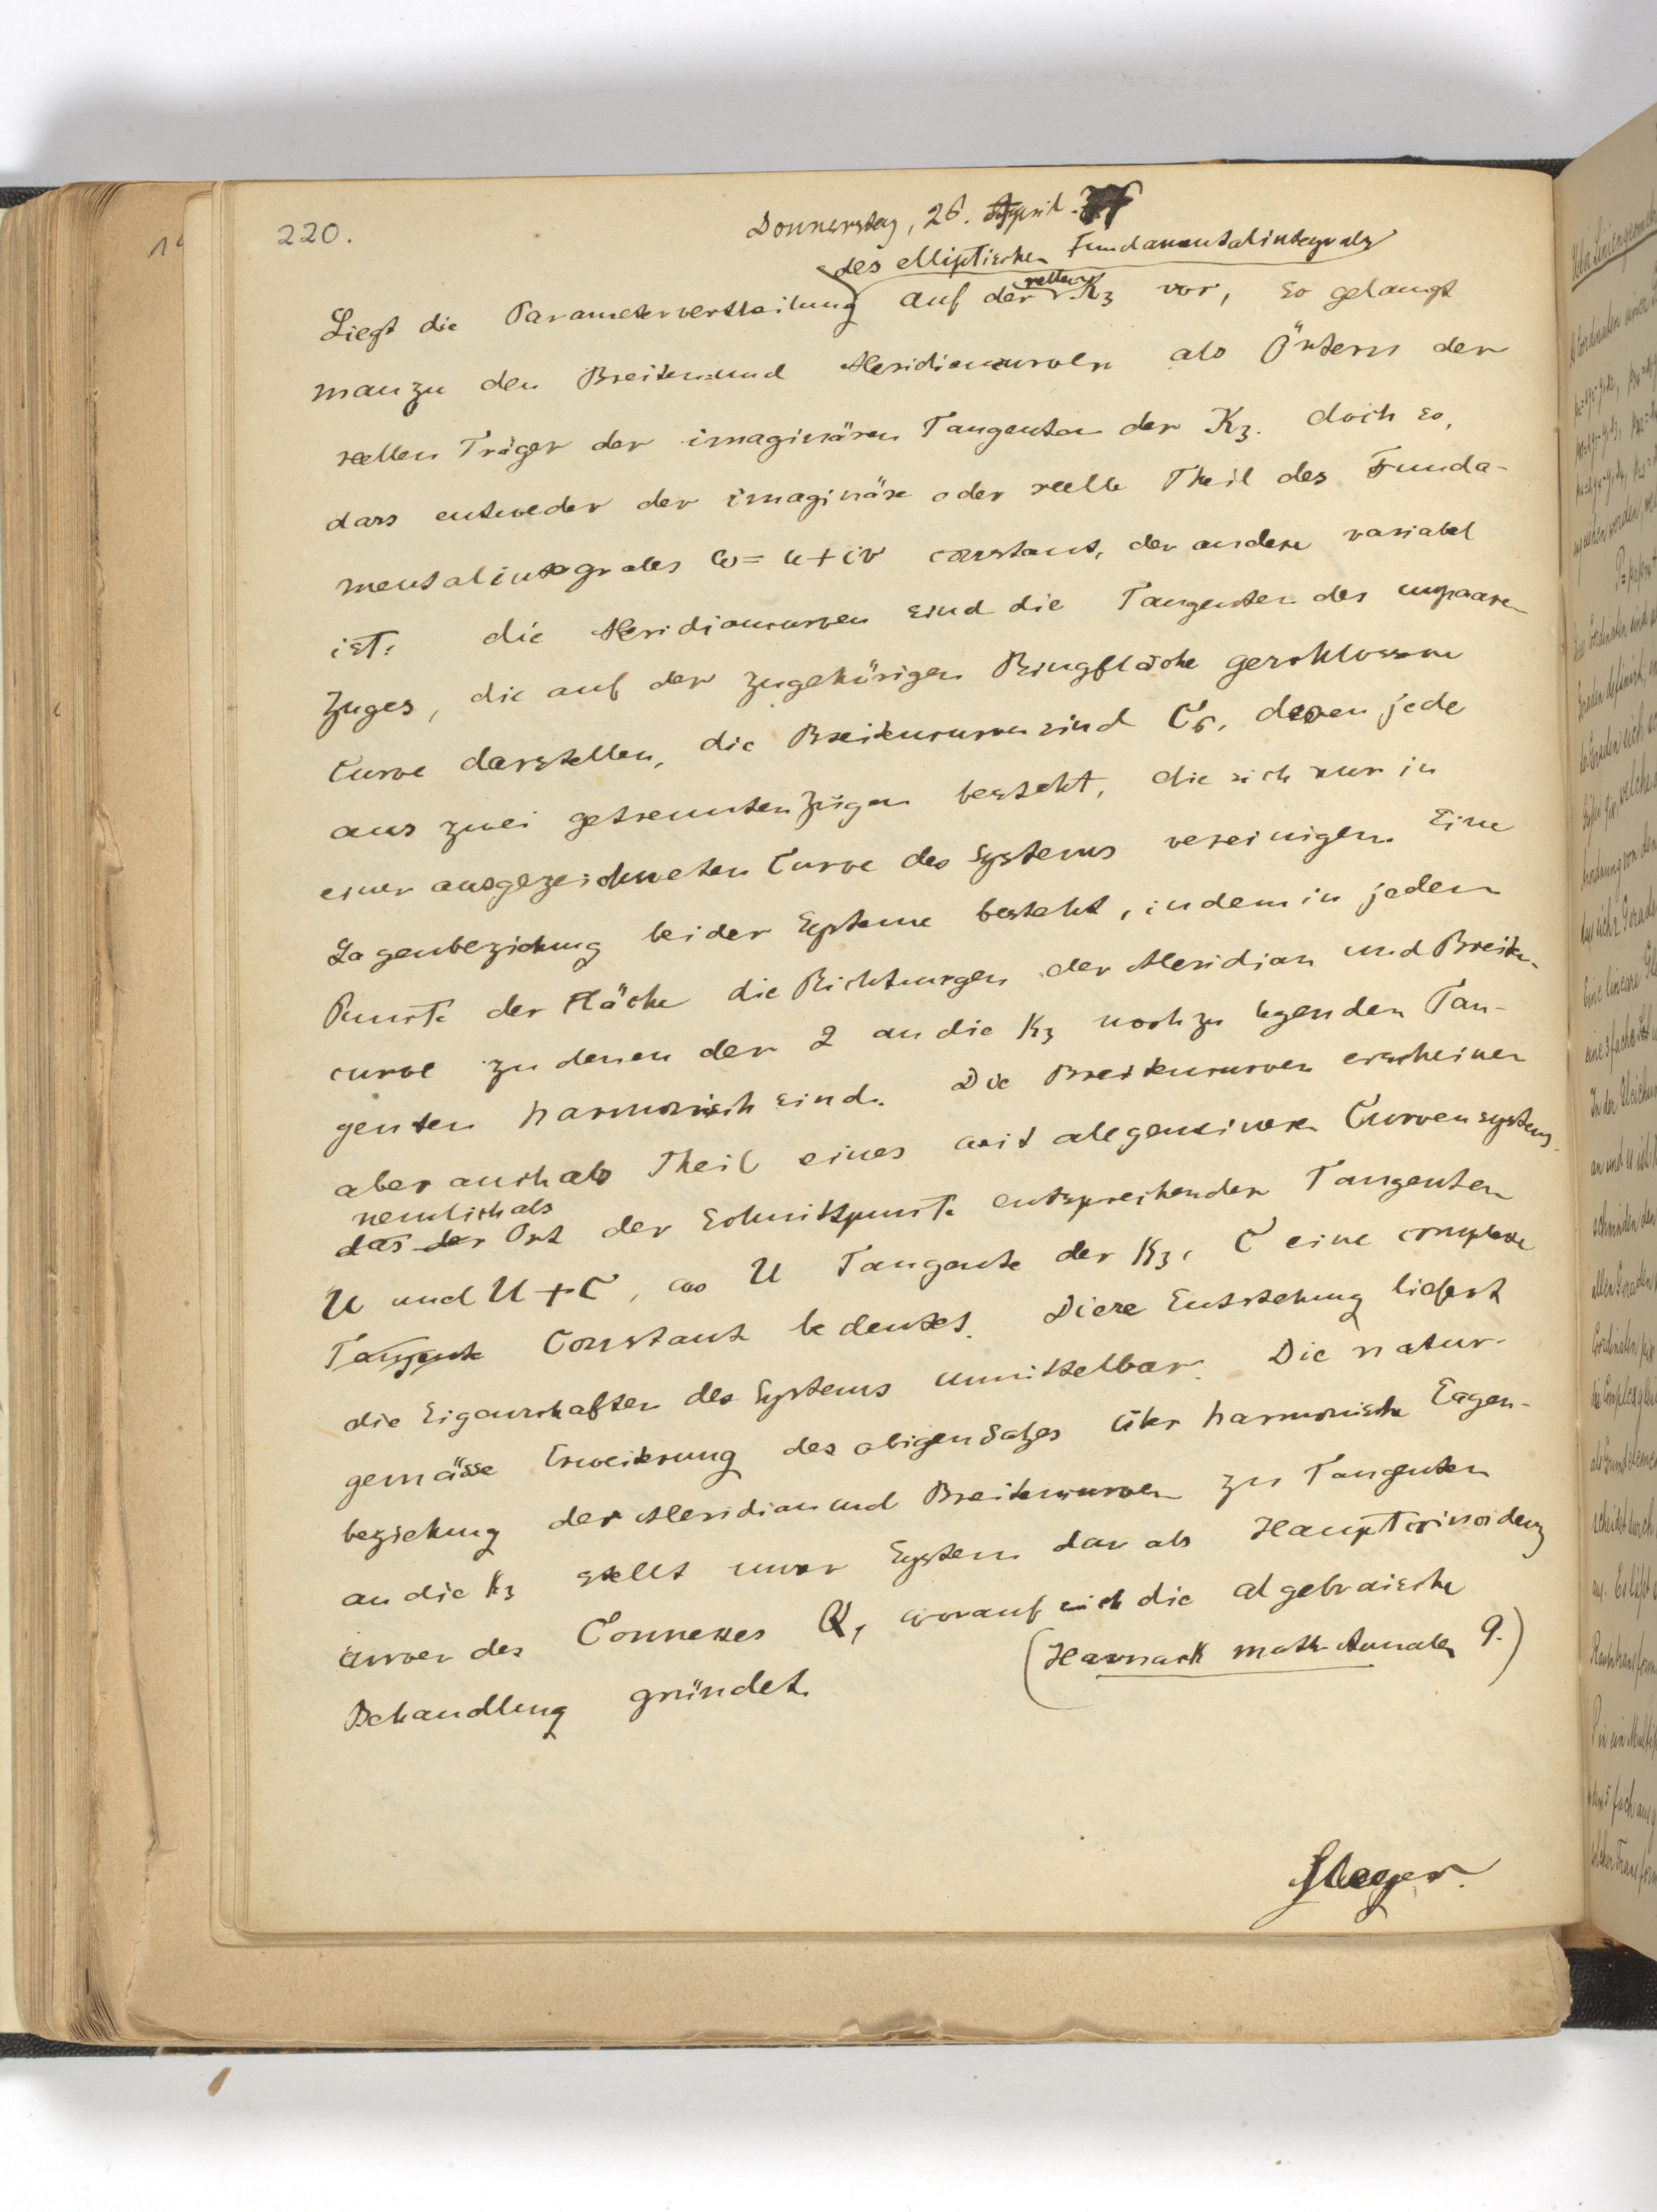 220.
Donnerstag, 26. April.
des elliptischen Fundamentalintegrals
Liegt die Parametervertheilung auf der reellen K₃ vor, so gelangt
man zu den Breiten- und Meridiancurven als Örtern der
reellen Träger der imaginären Tangenten der K₃. doch so,
dass entweder der imaginäre oder reelle Theil des Funda-
mentalintegrales w = u + iv constant, der andere variabel
ist. die Meridiancurven sind die Tangenten des unpaaren
Zuges, die auf der zugehörigen Ringfläche geschlossene
Curve darstellen, die Breitencurven sind C₆, deren jede
aus zwei getrennten Zügen besteht, die sich nur in
einer ausgezeichneten Curve des Systems vereinigen. Eine
Lagenbeziehung beider Systeme besteht, indem in jedem
Puncte der Fläche die Richtungen der Meridian und Breiten-
curve zu denen der 2 an die K₃ noch zu legenden Tan-
genten harmonisch sind. Die Breitencurven erscheinen
aber auch als Theil eines weit allgemeineren Curvensystems.
nemlich als
das der Ort der Schnittpuncte entsprechender Tangenten
U und U + C, wo U Tangente der K₃, C eine complexe
Tangente Constante bedeutet. Diese Entstehung liefert
die Eigenschaften des Systems unmittelbar. Die natur-
gemässe Erweiterung des obigen Satzes über harmonische Lagen-
beziehung der Meridian und Breitencurven zu Tangenten
an die K₃ stellt unser System dar als Hauptcoincidenz
curven des Connexes Q, worauf sich die algebraische
Behandlung gründet. (Harnack math. Annalen 9.)